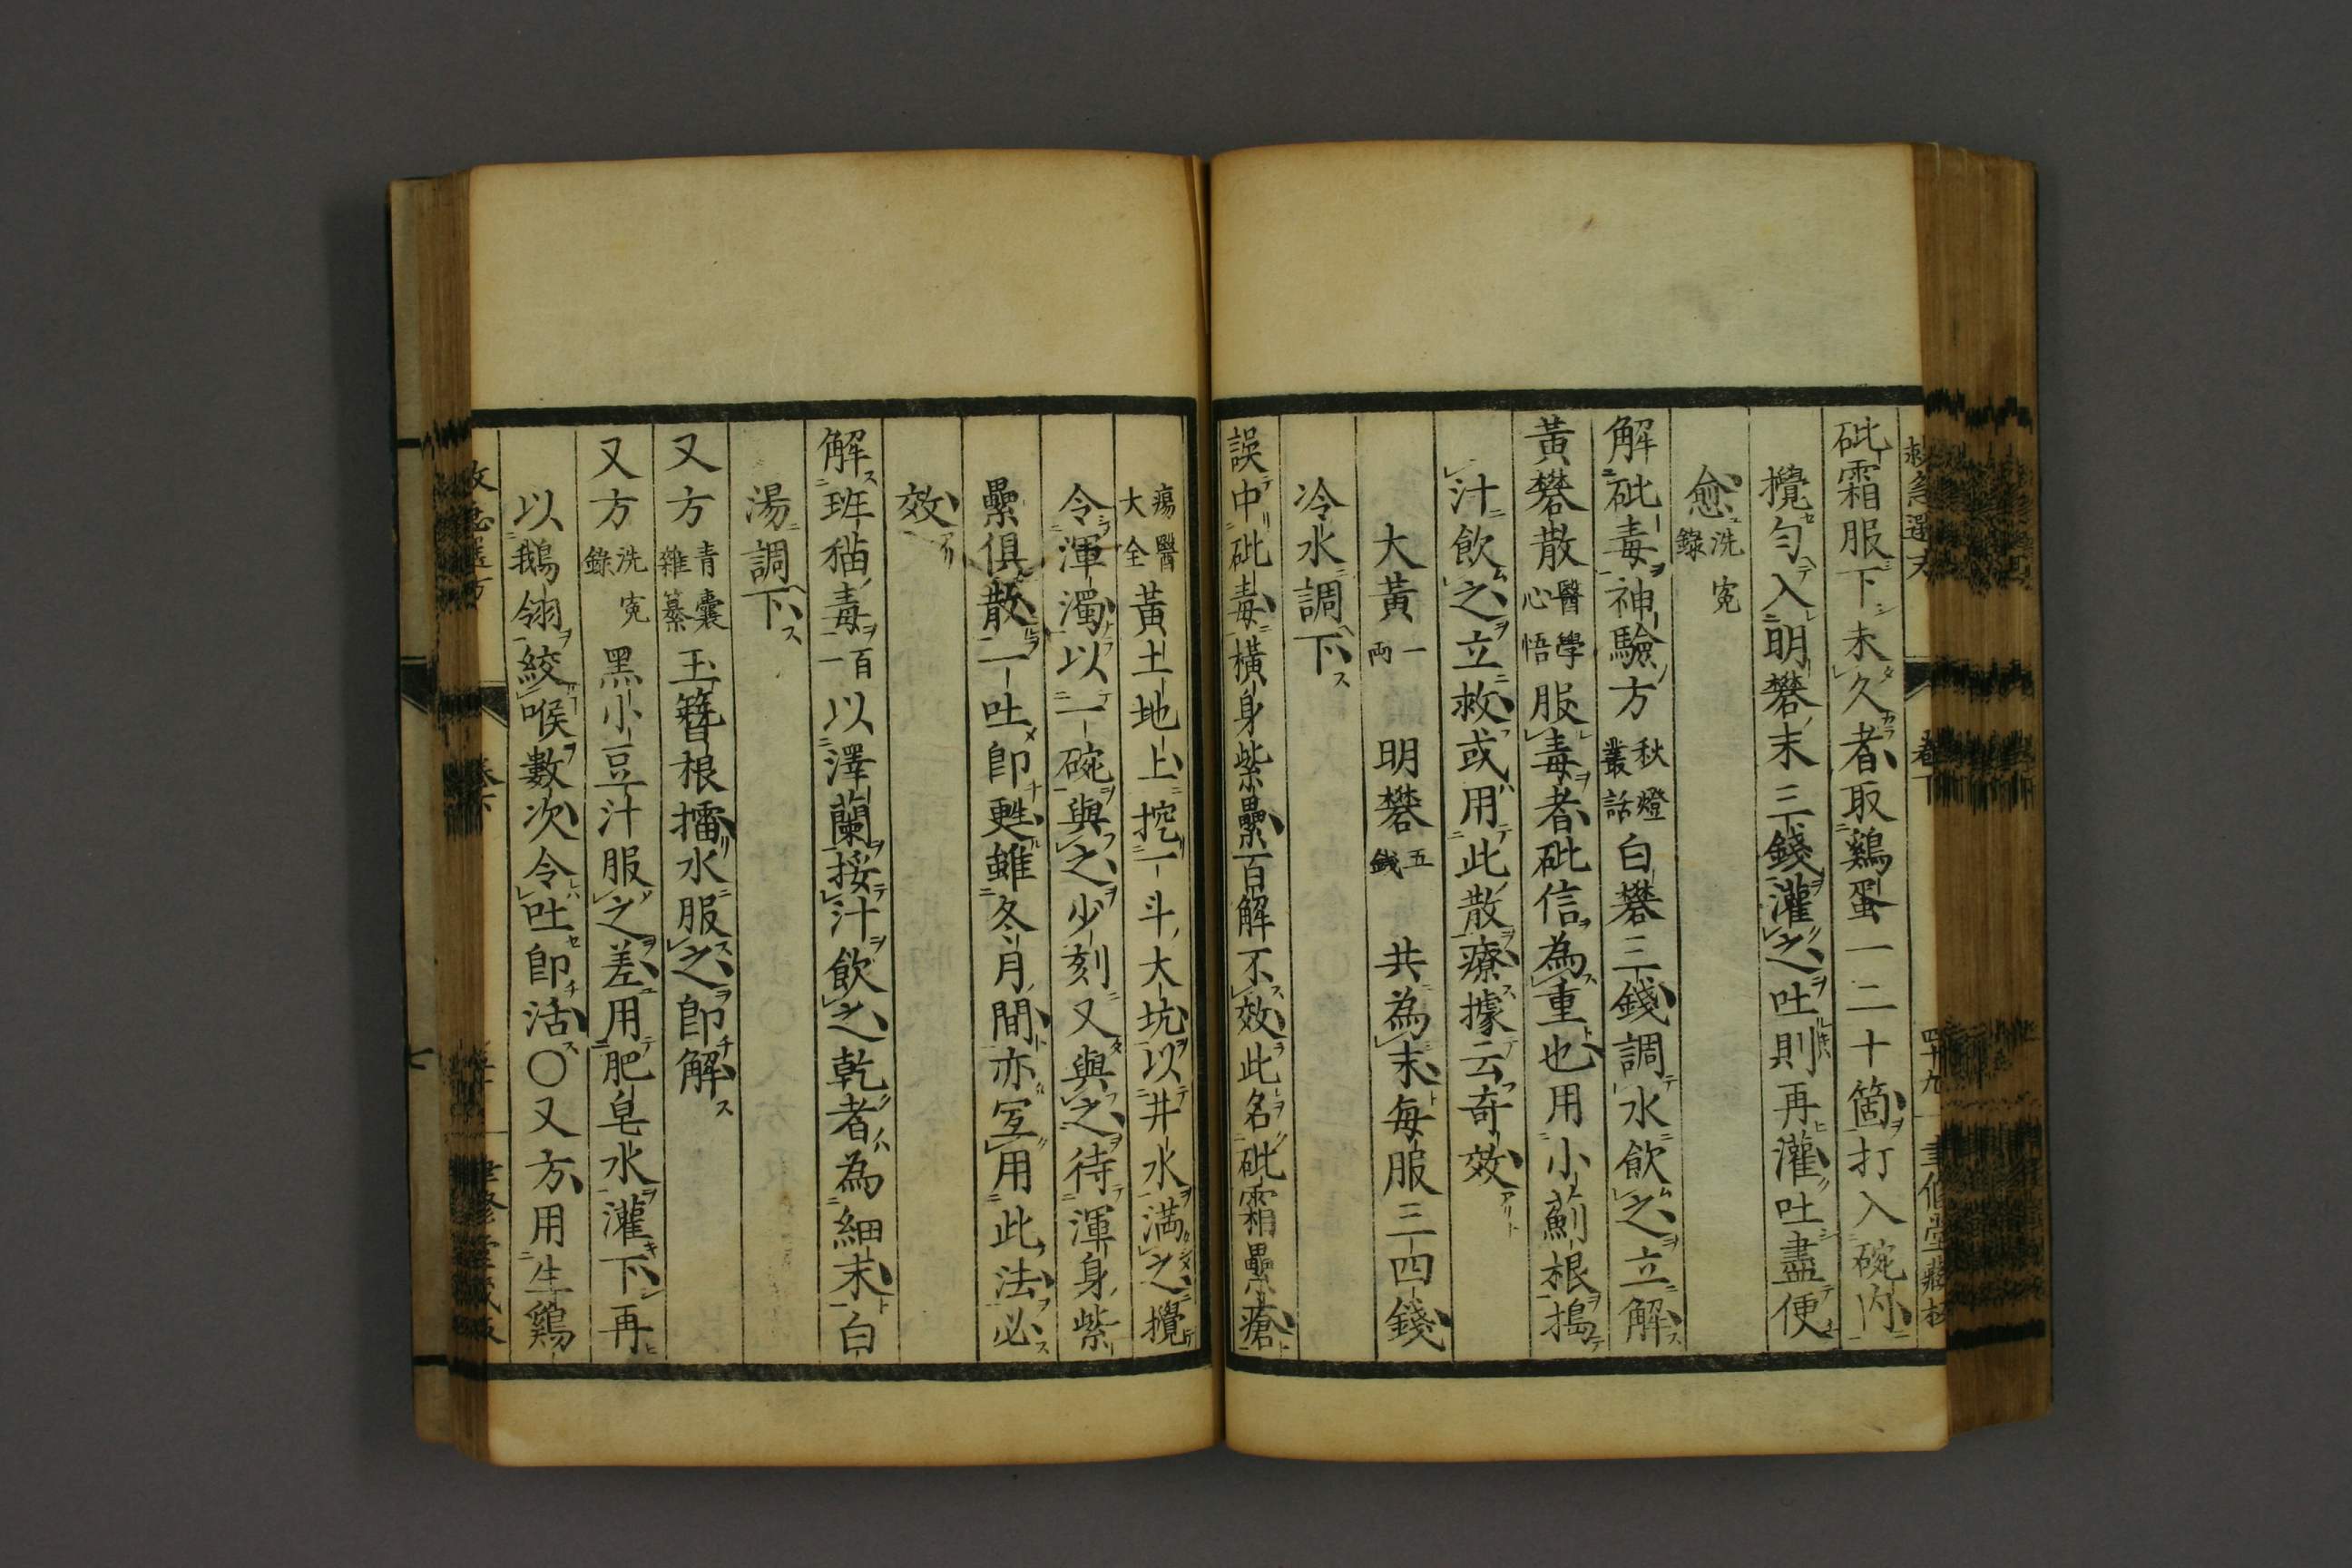 砒霜服下未久者取鷄蛋一二十箇打入碗内
攪勻入明礬末三錢灌之吐則再灌吐盡便
愈洗寃錄
解砒毒神驗方秋燈叢話白礬三錢調水飲之立解
黃礬散醫學心悟服毒者砒信為重也用小薊根搗
汁飲之立救或用此散療據云奇效
大黃一両 明礬五錢 共為末每服三四錢
冷水調下
誤中砒毒橫身紫纍百解不效此名砒霜纍瘡
瘍醫大全黃土地上挖一斗大坑以井水滿之攪
令渾濁以一碗與之少刻又與之待渾身紫
纍俱散一吐卽甦雖冬月間亦宜用此法必
效
解班猫毒百一以澤蘭挼汁飲之乾者為細末白
湯調下
又方青囊雜纂玉簪根擂水服之卽解
又方洗寃錄黑小豆汁服之差用肥皂水灌下再
以鵝翎絞喉數次令吐卽活〇又方用生鷄